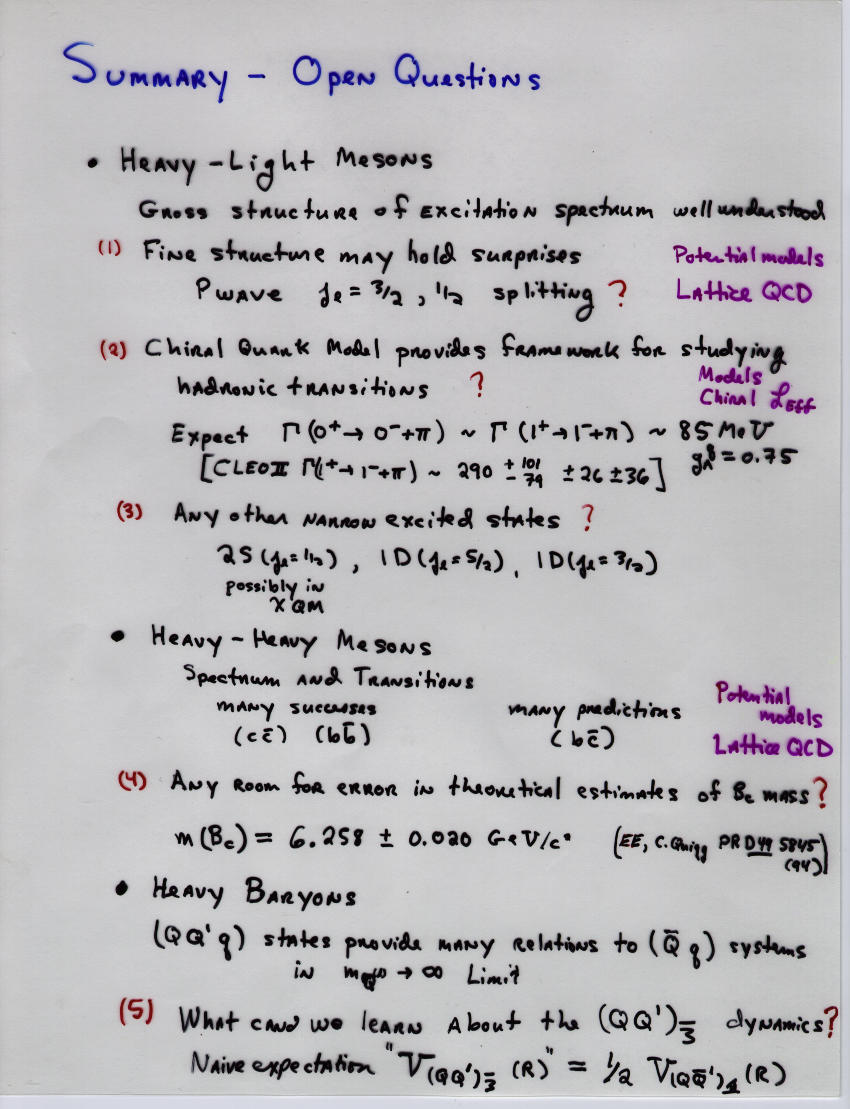 Summary – Open Questions
• Heavy-Light Mesons
Gross structure of excitation spectrum well understood
(1) Fine structure may hold surprises Potential models
P wave jℓ = 3/2, 1/2 splitting ? Lattice QCD
(2) Chiral Quark Model provides framework for studying
hadronic transitions ? Models
Chiral ℒEFF
Expect Γ(0⁺→0⁻+π) ~ Γ(1⁺→1⁻+π) ~ 85 MeV
[CLEO II Γ(1⁺→1⁻+π) ~ 290 +101 −79 ±26 ±36] gA⁸ = 0.75
(3) Any other narrow excited states ?
2S (jℓ=1/2), 1D (jℓ=5/2), 1D (jℓ=3/2)
possibly in
χQM
• Heavy-Heavy Mesons
Spectrum and Transitions
many successes many predictions Potential models
(cc̄) (bb̄) (bc̄) Lattice QCD
(4) Any room for error in theoretical estimates of Bc mass?
m(Bc) = 6.258 ± 0.020 GeV/c² (EE, C. Quigg PR D49 5845 (94))
• Heavy Baryons
(QQ'q) states provide many relations to (Q̄q) systems
in mQ → ∞ Limit
(5) What can we learn about the (QQ')3̄ dynamics?
Naive expectation "V(QQ')3̄ (R)" = 1/2 V(QQ̄')1 (R)